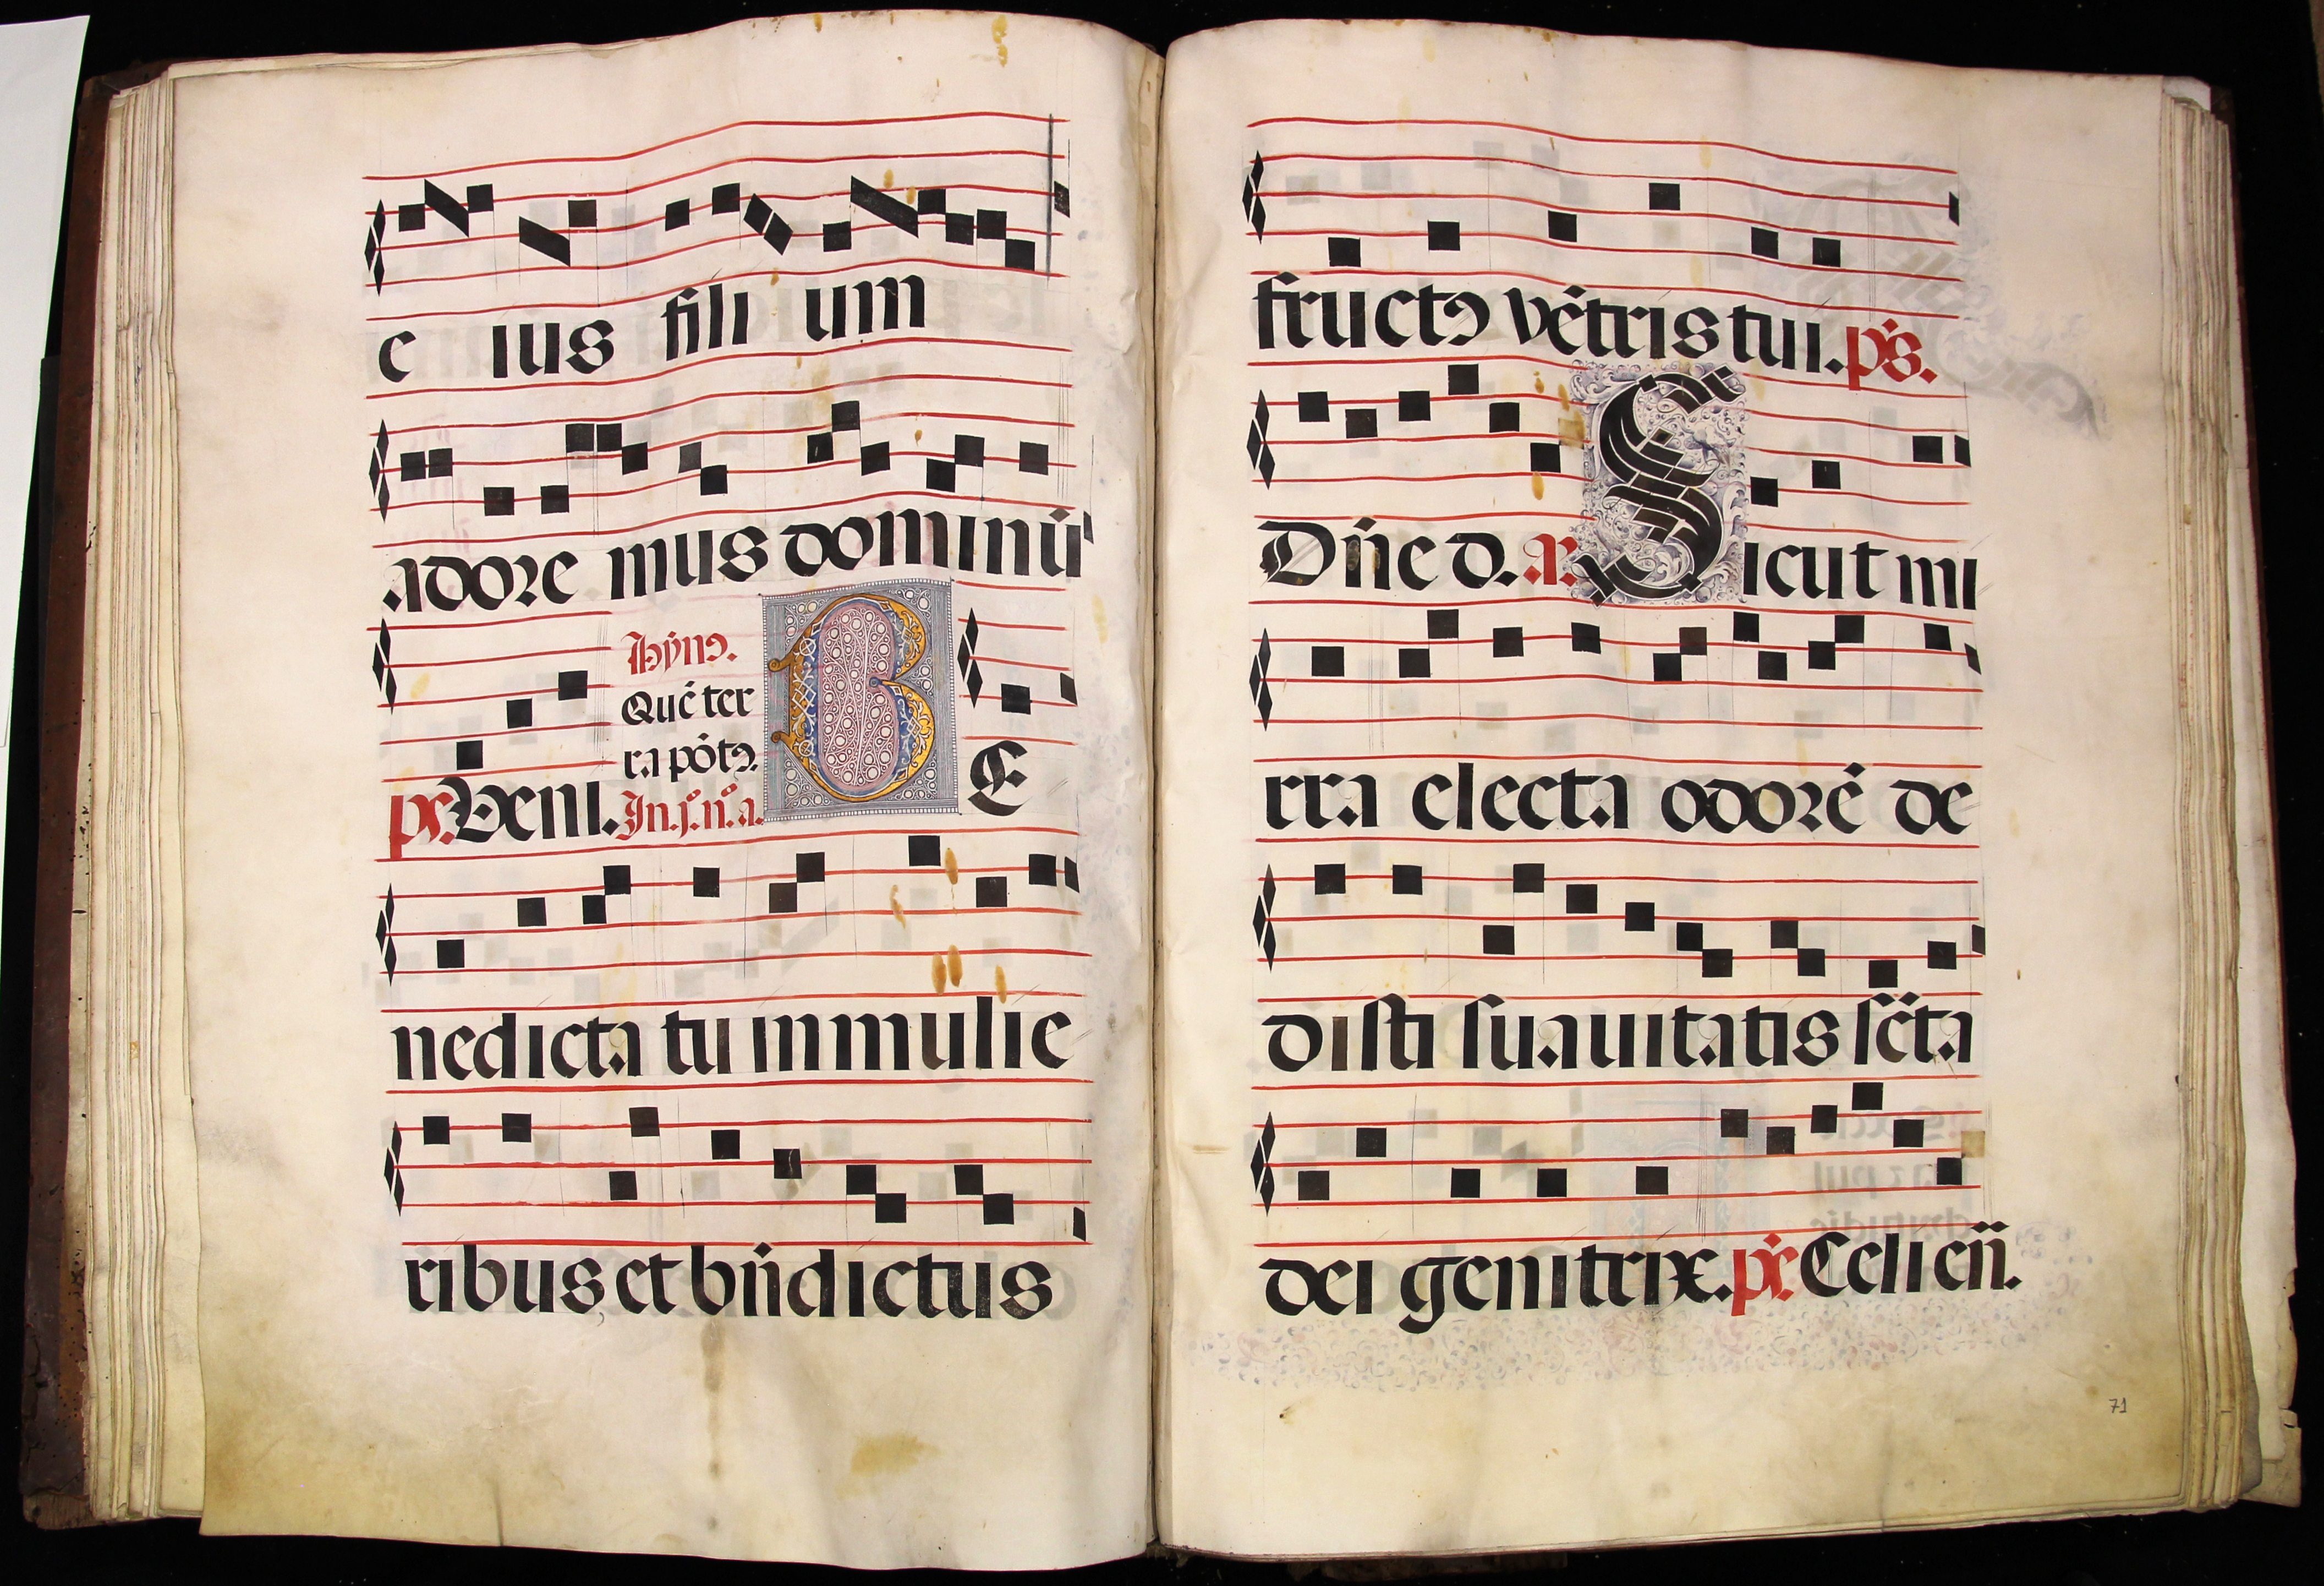 e ius fili um
adore mus dominũ
Hÿnꝯ.
Quẽ ter
ra põtꝯ.
p̃s. Veni. In.j.n̊.a. BE
nedicta tu in mulie
ribus et bñdictus
fructꝯ vẽtris tui. p̃s.
Dñe d. A. Sicut mi
rra electa odorẽ de
disti suauitatis sc̃ta
dei genitrix. p̃s. Celi eñ.
71